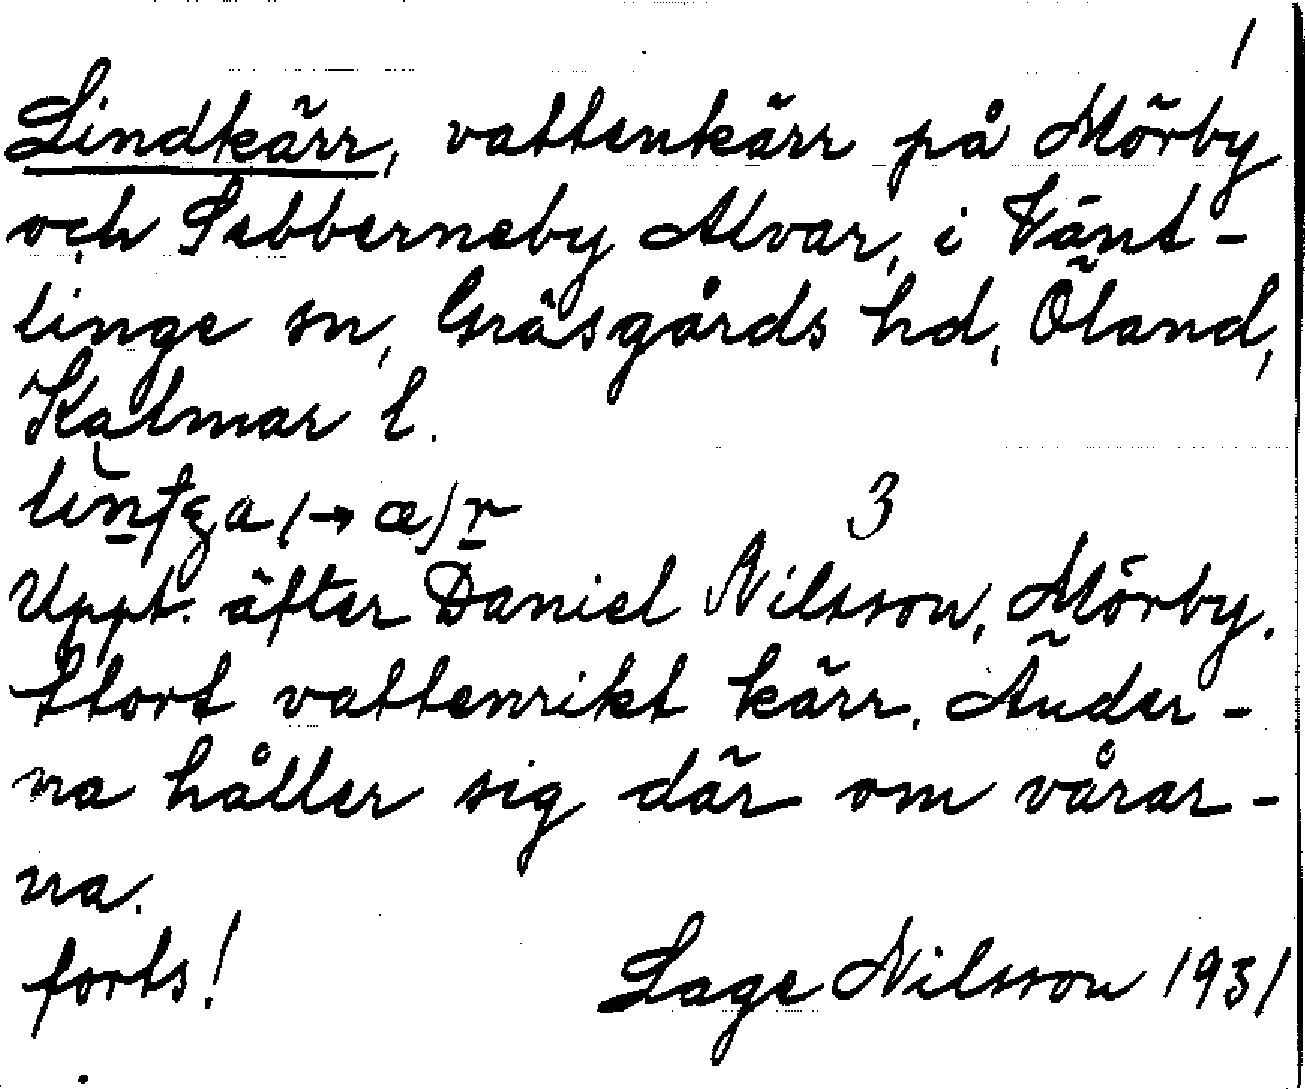 1
Lindkärr, vattenkärr på Mörby
och Sebberneby Alvar, i Vänt-
linge sn, Gräsgårds hd, Öland,
Kalmar l.
3
Uppt. äfter Daniel Nilsson, Mörby.
Stort vattenrikt kärr. Änder-
na håller sig där om vårar-
na.
forts!
Lage Nilsson 1931